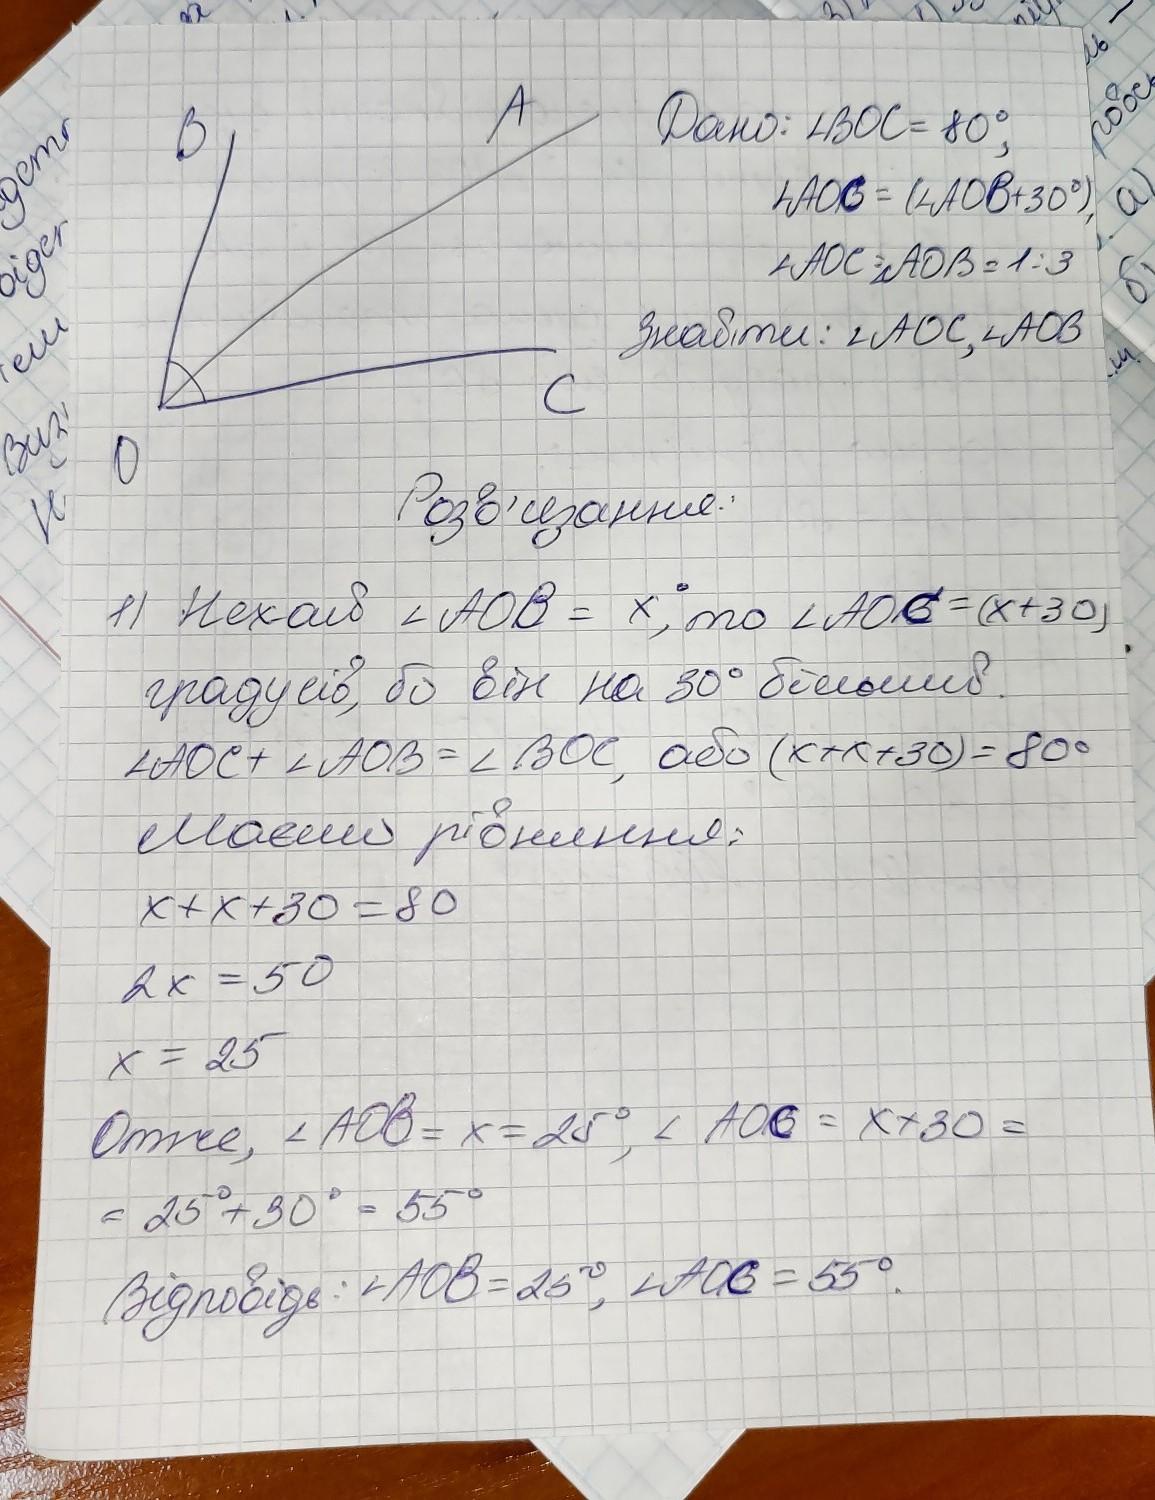 B
A
C
O
Дано: ∠BOC = 80°,
∠AOC = (∠AOB+30°),
∠AOC:∠AOB = 1:3
Знайти: ∠AOC, ∠AOB
Розв'язання:
1) Нехай ∠AOB = x°, то ∠AOC = (x+30)
градусів, бо він на 30° більший.
∠AOC + ∠AOB = ∠BOC, або (x+x+30) = 80°
Маємо рівняння:
x+x+30 = 80
2x = 50
x = 25
Отже, ∠AOB = x = 25°, ∠AOC = x+30 =
= 25°+30° = 55°
Відповідь: ∠AOB = 25°, ∠AOC = 55°.